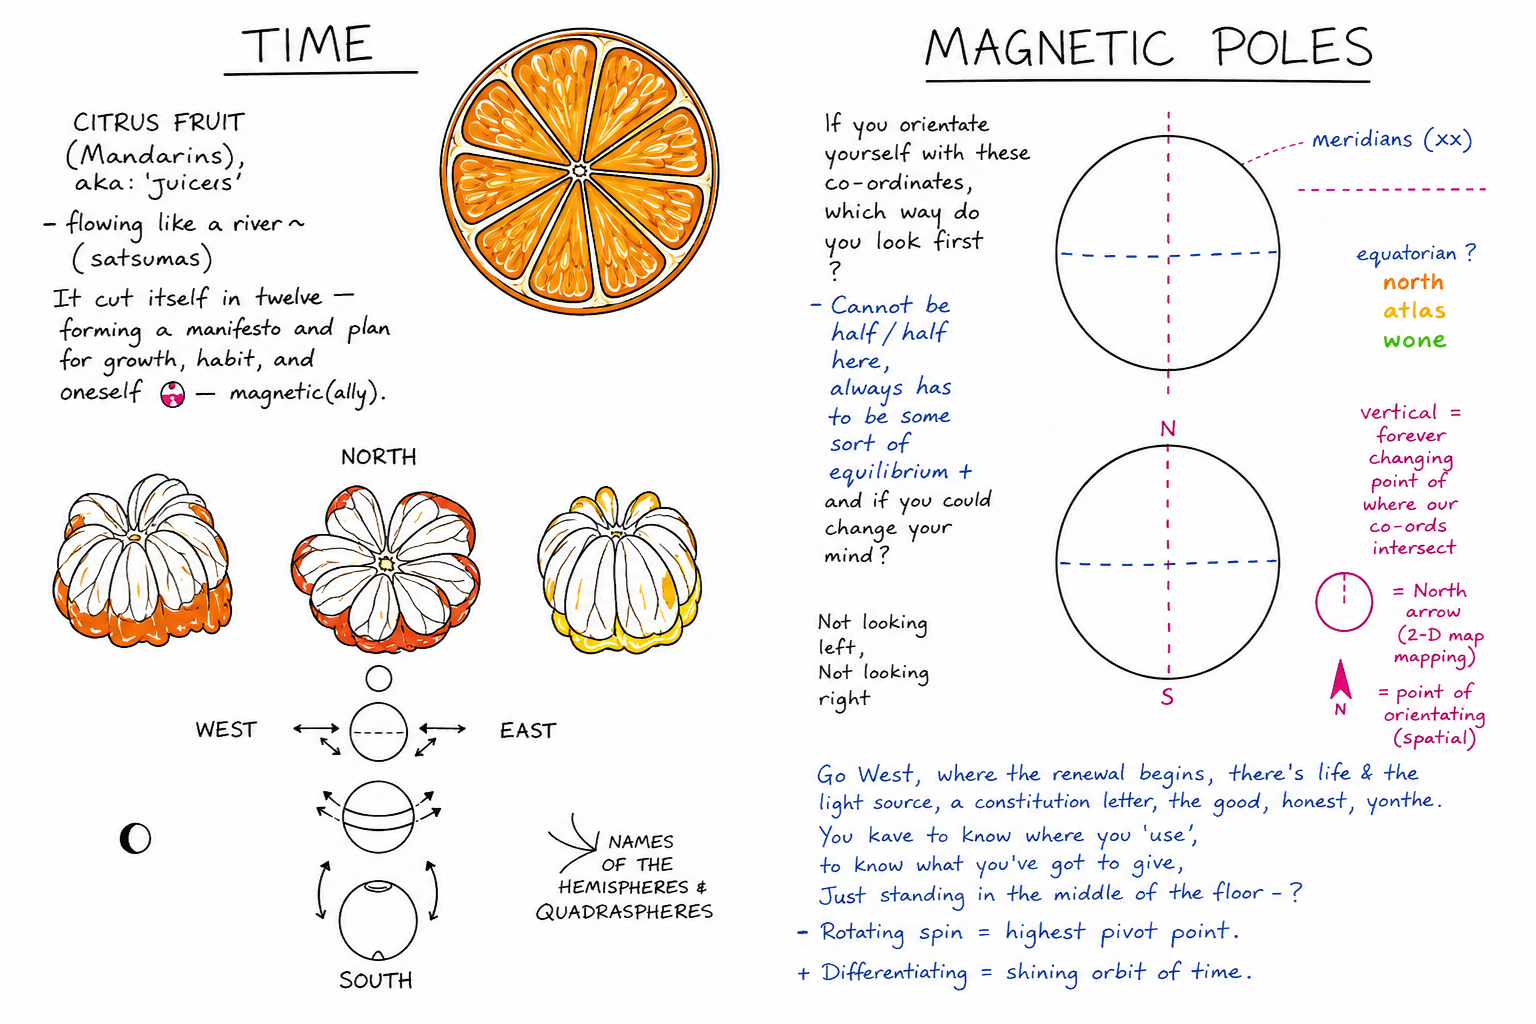 TIME
CITRUS FRUIT
(Mandarins),
aka: 'Juicers'
– flowing like a river ~
(satsumas)
It cut itself in twelve —
forming a manifesto and plan
for growth, habit, and
oneself — magnetic(ally).
NORTH
WEST
EAST
NAMES
OF THE
HEMISPHERES &
QUADRASPHERES
SOUTH
MAGNETIC POLES
If you orientate
yourself with these
co-ordinates,
which way do
you look first
?
– Cannot be
half/half
here,
always has
to be some
sort of
equilibrium +
and if you could
change your
mind?
Not looking
left,
Not looking
right
meridians (xx)
equatorian ?
north
atlas
wone
N
S
vertical =
forever
changing
point of
where our
co-ords
intersect
= North
arrow
(2-D map
mapping)
N
= point of
orientating
(spatial)
Go West, where the renewal begins, there's life & the
light source, a constitution letter, the good, honest, yonthe.
You kave to know where you 'use',
to know what you've got to give,
Just standing in the middle of the floor – ?
– Rotating spin = highest pivot point.
+ Differentiating = shining orbit of time.